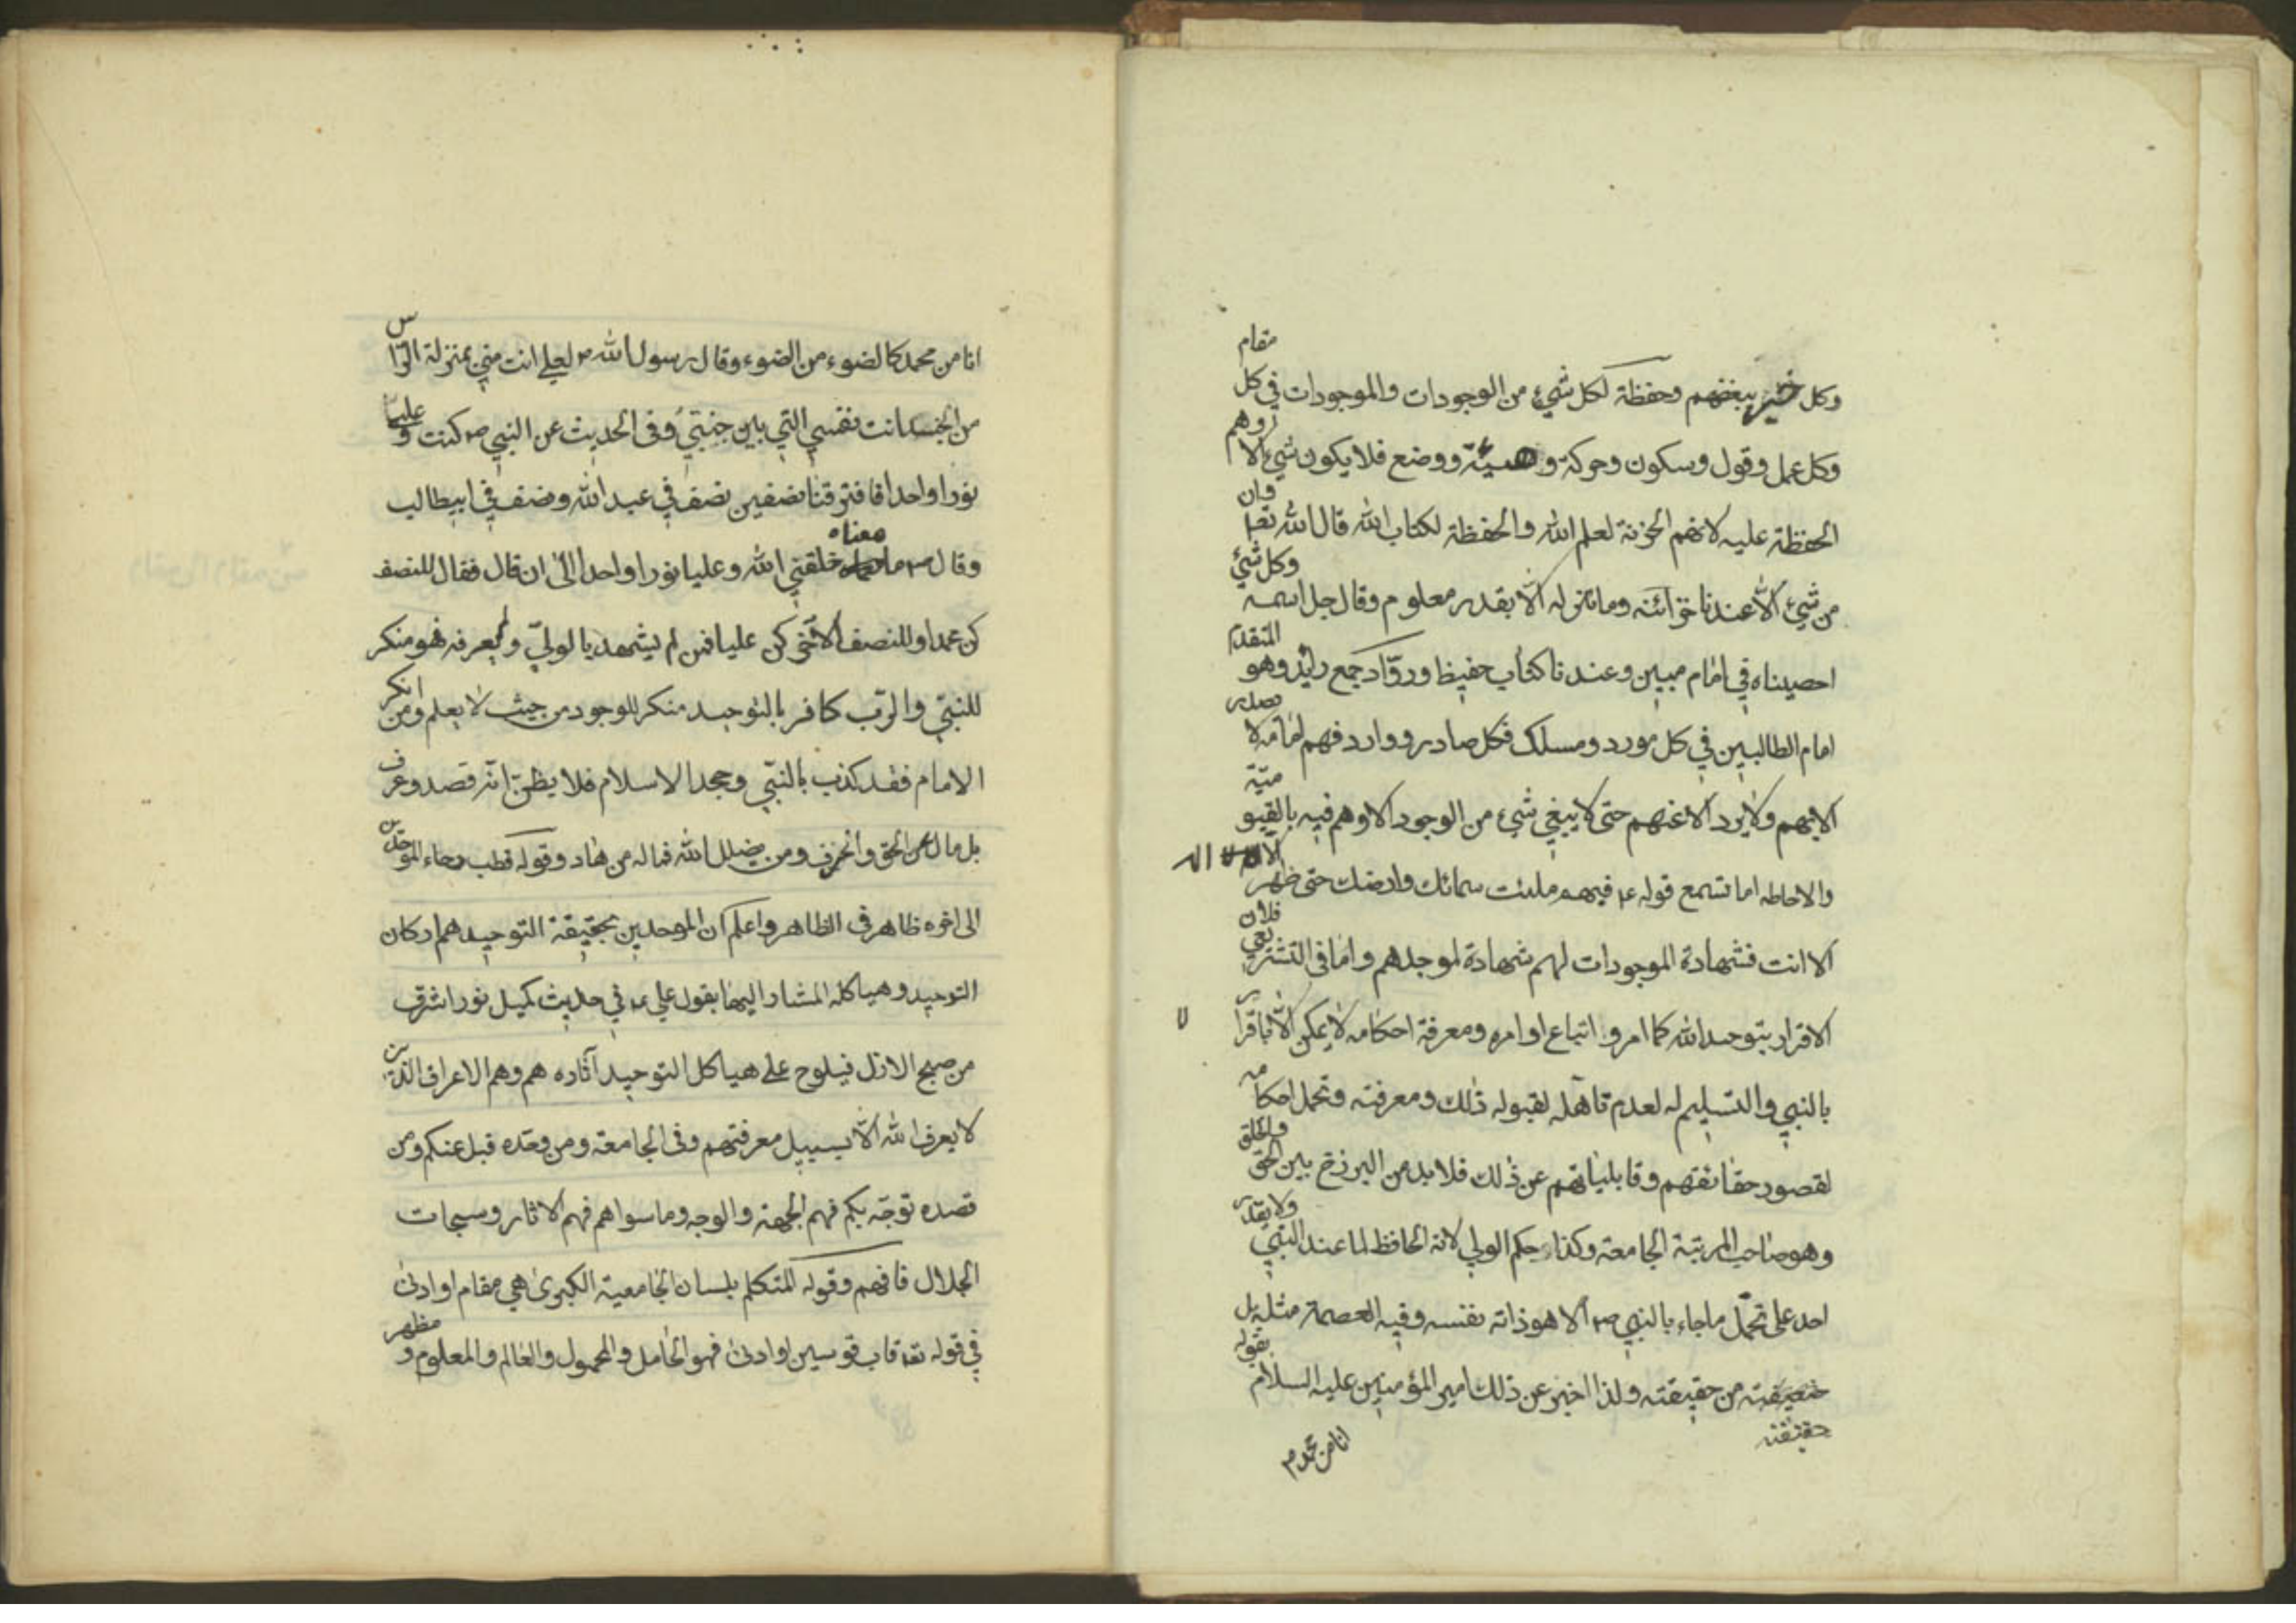 وكل خير ببغضهم وحفظة لكل شيء من الوجودات والموجودات في كل مقام
وكل عمل وقول وسكون وحركة و هيئة ووضع فلا يكون شيء الا وهم
الحفظة عليه لانهم الخزنة لعلم الله والحفظة لكتاب الله قال الله تعا وان
من شيء الا عندنا خزائنه وما ننزله الا بقدر معلوم وقال جل اسمه وكل شيء
احصيناه في امام مبين وعندنا كتاب حفيظ وروّاد جمع رائد وهو المتقدم
امام الطالبين في كل مورد ومسلك فكل صادر ووارد فهم امامه لا يصدر
الا بهم ولا يرد الا عنهم حتى لا يبغي شيء من الوجود الا وهم فيه بالقيوميّة
والاحاطه اما تسمع قوله ع فبهم ملئت سمائك وارضك حتى ظهر ان لا اله
الا انت فشهادة الموجودات لهم شهادة لموجدهم واما في التشريعي فلان
الاقرار بتوحيد الله كما امر و اتباع اوامره ومعرفة احكامه لا يمكن الا باقرار
بالنبي والتسليم له لعدم تاهله لقبوله ذلك ومعرفته وتحمل احكامه
لقصور حقائقهم وقابلياتهم عن ذلك فلا بد من البرزخ بين الحق والخلق
وهو صاحب المرتبة الجامعة وكذا حكم الولي لانه الحافظ لما عند النبي ولا يقدر
احد على تحمّل ما جاء بالنبي ص الا هو ذاته نفسه وفيه العصمة مثله بل
حقيقته من حقيقته ولذا اخبر عن ذلك امير المؤمنين عليه السلام بقوله
حقيقته
انا من محمد م
انا من محمد كالضوء من الضوء وقال رسول الله ص لعلي انت مني بمنزلة الراس
من الجسد انت نفسي التي بين جنبتيّ وفي الحديث عن النبي ص كنت و عليا
نورا واحدا فافترقنا نصفين نصف في عبد الله ونصف في ابيطالب
وقال ص ما معناه خلقني الله وعليا نورا واحدا الى ان قال فقال للنصف
كن محمدا وللنصف الآخر كن عليا فمن لم يشهد بالوليّ ولم يعرفه فهو منكر
للنبيّ والربّ كافر بالتوحيد منكر للوجود من حيث لا يعلم ومن انكر
الامام فقد كذب بالنبّي وجحد الاسلام فلا يظنّ انّه قصد وعرف
بل مال عن الحق وانحرف ومن يضلل الله فماله من هاد وقوله قطب رحاء الموحّدين
الى اخره ظاهر في الظاهر واعلم ان الموحدين بحقيقة التوحيد هم اركان
التوحيد وهياكله المشار اليها بقول علي ع في حديث كميل نور اشرق
من صبح الازل فيلوح على هياكل التوحيد آثاره هم وهم الاعراف الذين
لا يعرف الله الّا بسبيل معرفتهم وفي الجامعة ومن وحّده قبل عنكم ومن
قصده توجّه بكم فهم الجهة والوجه وما سواهم فهم الاثار وسبحات
الجلال فافهم وقوله المتكلم بلسان الجامعية الكبرى هي مقام او ادنى
في قوله تعا قاب قوسين او ادنى فهو الحامل والمحمول والعالم والمعلوم و مظهر